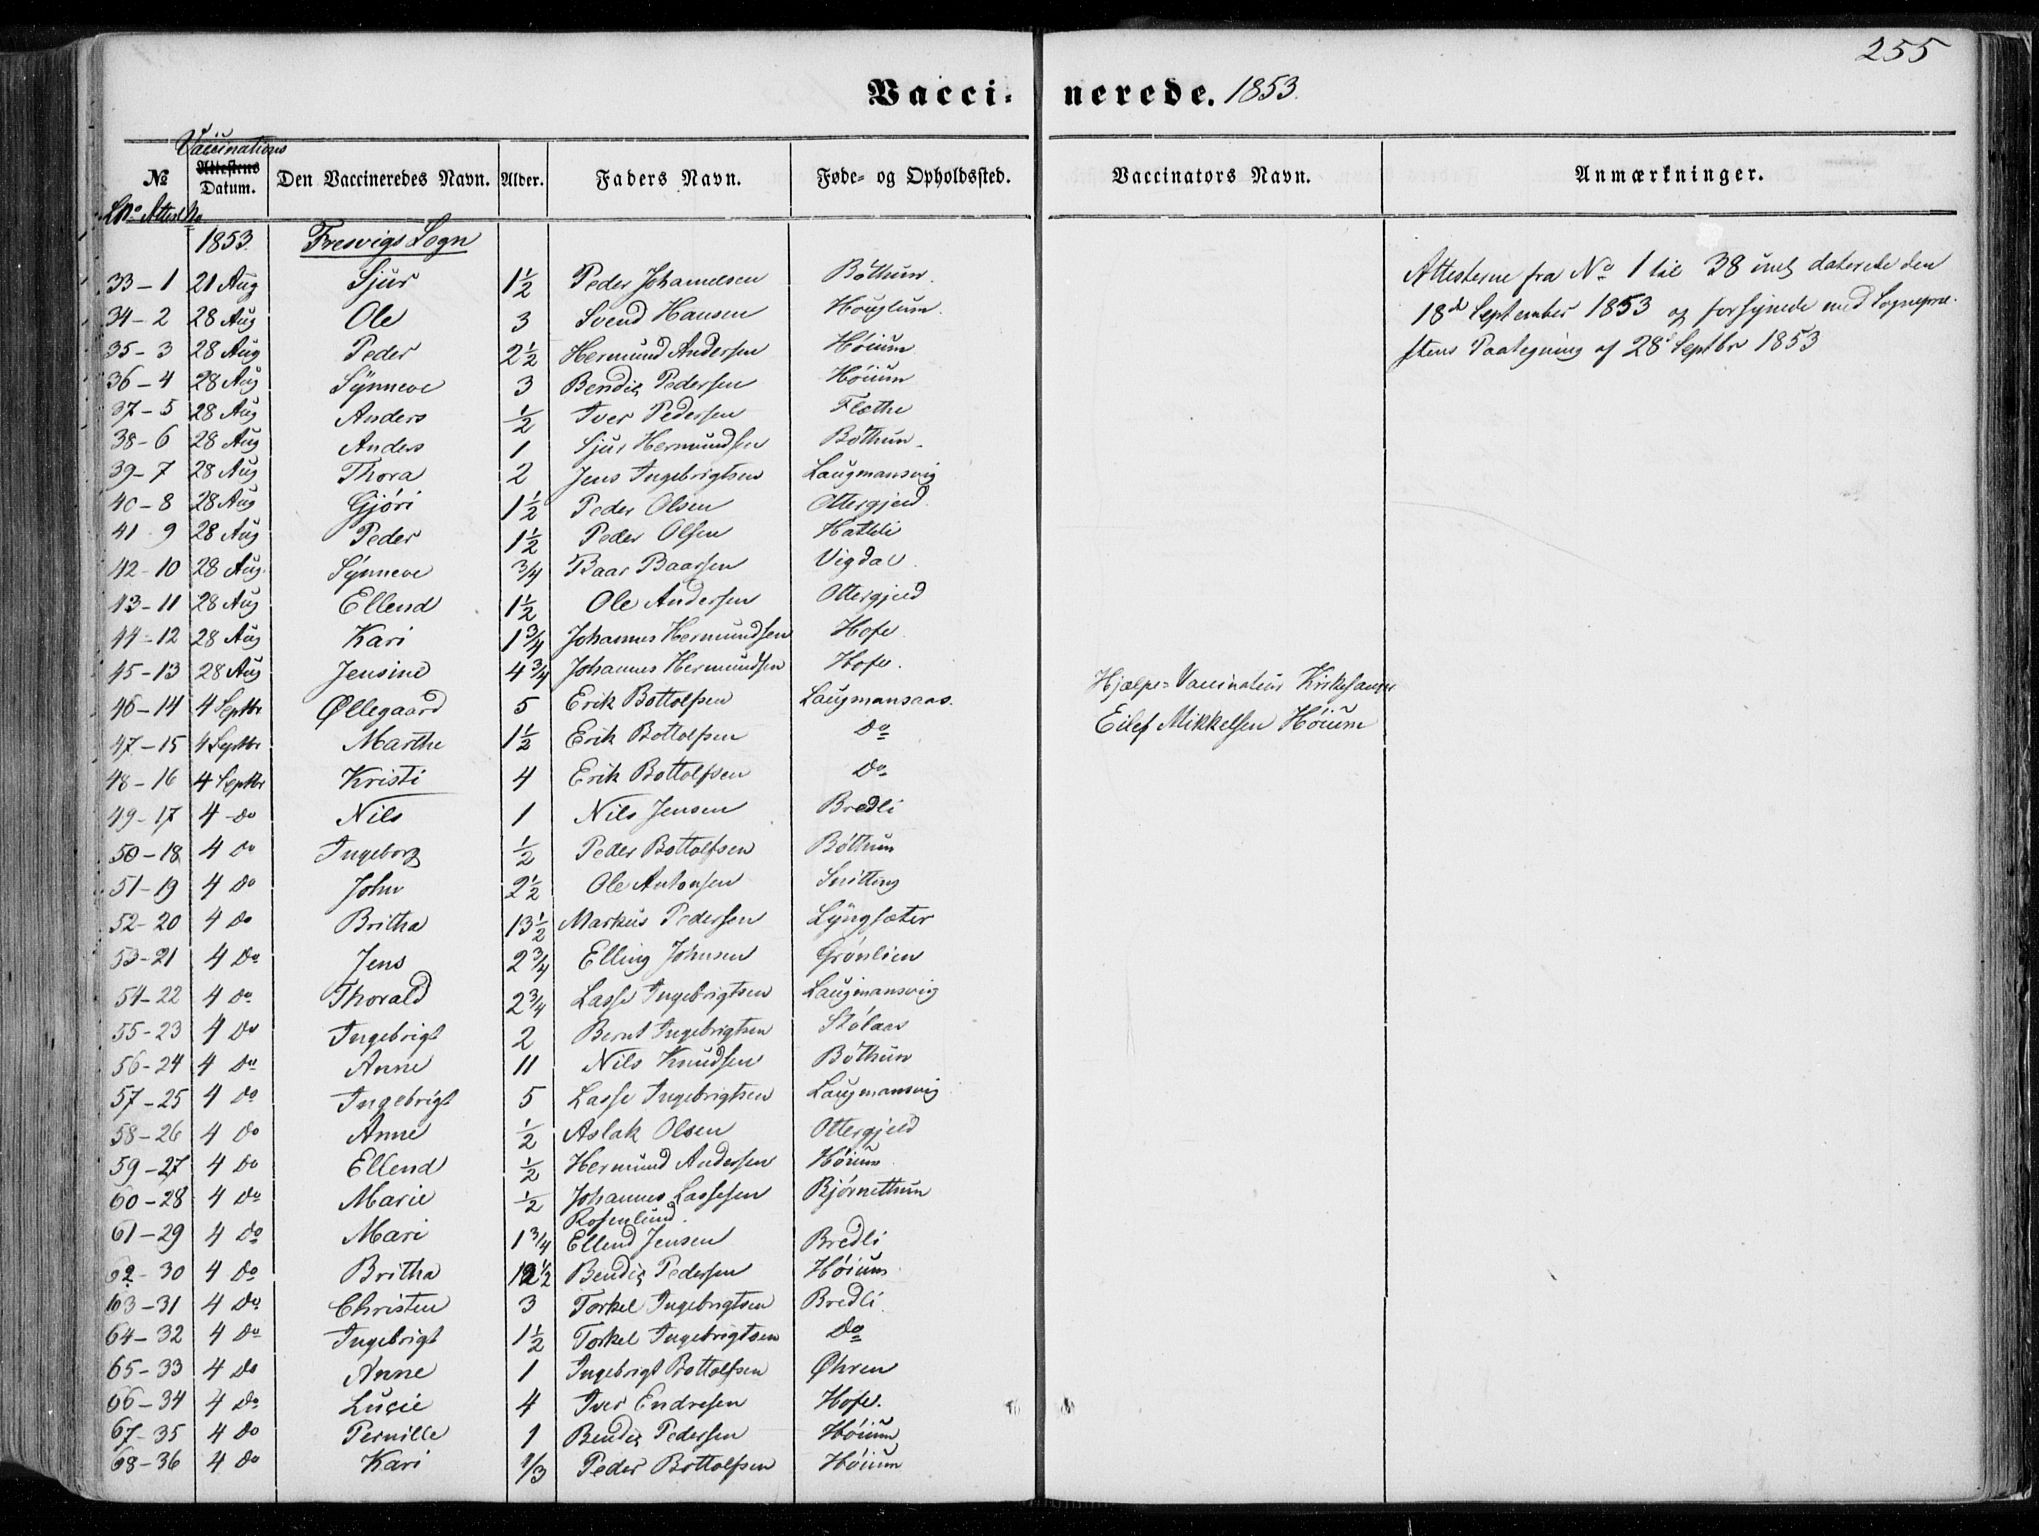 255
Vacci- nerede. 1853.
Vaccinations
№ Attestens Datum. Den Vaccineredes Navn. Alder. Faders Navn. Føde- og Opholdssted. Vaccinators Navn. Anmærkninger.
LNo Attest No
1853. Fresvigs Sogn
33-1 21 Aug Sjur 1½ Peder Johannesen Böthun.
34-2 28 Aug Ole 3 Svend Hansen Houglum.
35-3 28 Aug Peder 2½ Hermund Andersen Höium
36-4 28 Aug Synneve 3 Bendix Pedersen Höium
37-5 28 Aug Anders ½ Iver Pedersen Flæthe
38-6 28 Aug Anders 1 Sjur Hermundsen Böthun.
39-7 28 Aug Thora 2 Jens Ingebrigtsen Laugmansvig
40-8 28 Aug Gjöri 1½ Peder Olsen Ottergjerd
41 9 28 Aug Peder 1½ Peder Olsen Hatleli
42-10 28 Aug. Synneve ¾ Baar Baarsen Vigdal.
43-11 28 Aug Ellend 1½ Ole Andersen Ottergjerd
44-12 28 Aug Kari 1¾ Johannes Hermundsen Hofe.
45-13 28 Aug Jensine 4¾ Johannes Hermundsen Hofe.
46-14 4 Septbr Øllegaard 5 Erik Bottolfsen Laugmansaas.
47-15 4 Septbr Marthe 1½ Erik Bottolfsen Do
48-16 4 Septbr Kristi 4 Erik Bottolfsen Do
49-17 4 do Nils 1 Nils Jensen Bredli
50-18 4 Do Ingeborg ½ Peder Bottolfsen Böthun
51-19 4 Do John 2½ Ole Antonsen Snitting
52-20 4 Do Britha 13½ Markus Pedersen Lyngsæter
53-21 4 Do Jens 2¾ Elling Johnsen Grönlien
54-22 4 Do Thorald 2¾ Lasse Ingebrigtsen Laugmansvig
55-23 4 Do Ingebrigt 2 Bernt Ingebrigtsen Stölaas
56-24 4 Do Anne 11 Nils Knudsen Böthun
57-25 4 Do Ingebrigt 5 Lasse Ingebrigtsen Laugmansvig
58-26 4 Do Anne ½ Aslak Olsen Ottergjerd
59-27 4 Do Ellend ½ Hermund Andersen Höium
60-28 4 Do Marie ½ Johannes Lassesen Bjørnethun
Rosenlund.
61-29 4 Do Mari 1¾ Ellend Jensen Bredli
62-30 4 Do Britha 12½ Bendix Pedersen Höium
63-31 4 Do Christen 3 Torkel Ingebrigtsen Bredli.
64-32 4 Do Ingebrigt 1½ Torkel Ingebrigtsen Do
65-33 4 Do Anne 1 Ingebrigt Bottolfsen Øhren
66-34 4 Do Lucie 4 Iver Endresen Hofe.
67-35 4 Do Pernille 1 Bendix Pedersen Höium
68-36 4 Do Kari 1/3 Peder Bottolfsen Höium
Hjælpe-Vaccinateur Kirkesanger
Eilef Mikkelsen Höium
Attesterne fra No 1 til 38 incl daterede den
18de September 1853 og forsynede med Sognepræ-
stens Paategning af 28de Septbr 1853